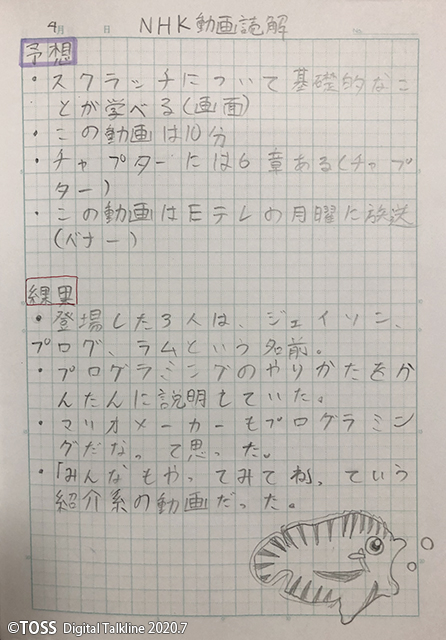 4月 日 NHK動画読解 No.
予想
・スクラッチについて基礎的なこ
とが学べる(画面)
・この動画は10分
・チャプターには6章ある(チャプ
ター)
・この動画はEテレの月曜に放送
(バナー)
結果
・登場した3人は、ジェイソン、
プログ、ラムという名前。
・プログラミングのやりかたをか
んたんに説明もしていた。
・マリオメーカーもプログラミン
グだな。って思った。
・「みんなもやってみてね」、ていう
紹介系の動画だった。
©TOSS Digital Talkline 2020.7